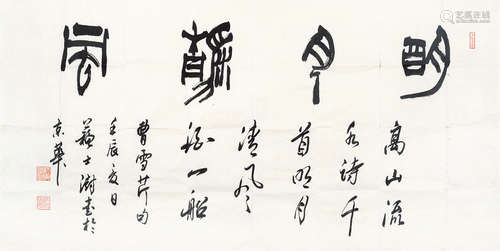 明月風
高山流
水詩千
首明月
清风
酒一船
曹雪芹句
壬辰夏日
蘇士澍書於
京華
艺高在线